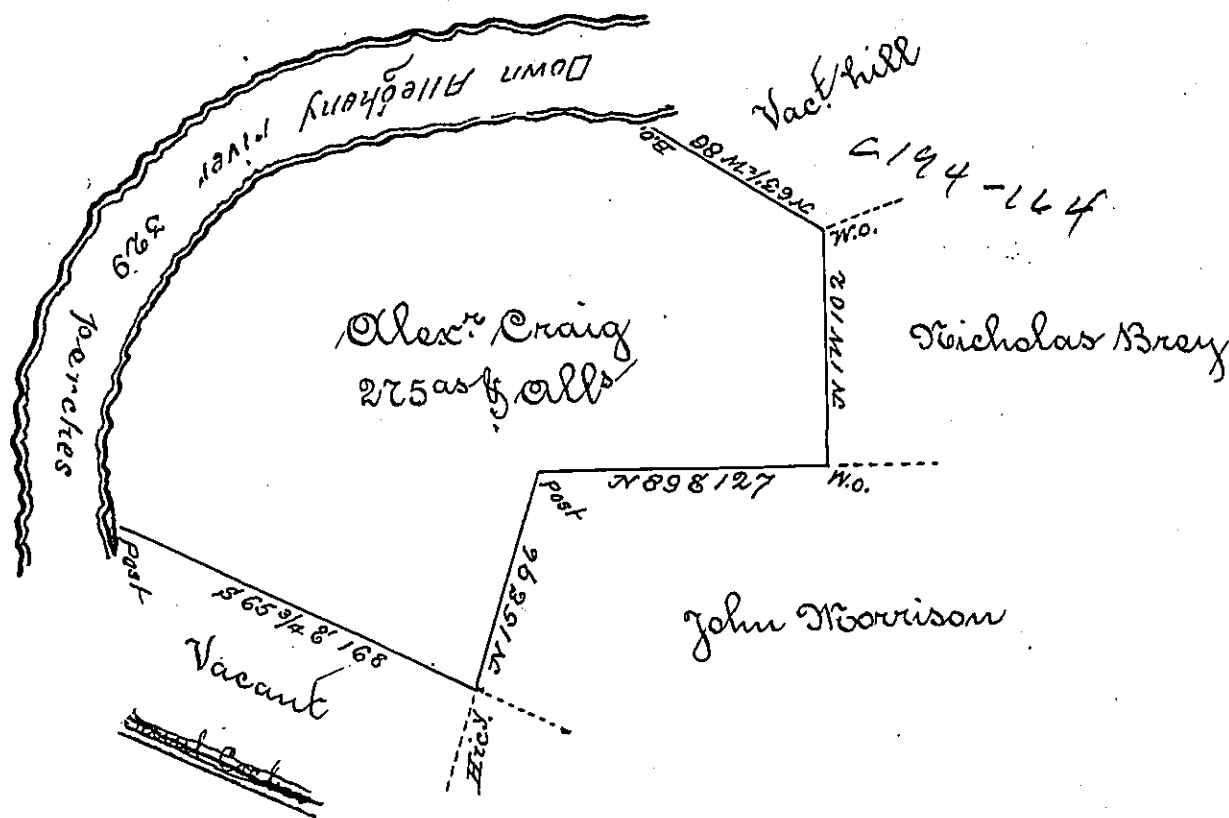 Down Allegheny river 329 perches
Vact. hill
C194-164
B.O.
N63½W 86
W.O.
N1W 102
Nicholas Bray
Alexr. Craig
275as & Alls
N89E 127
W.O.
Post
N15E 96
John Morrison
Post
S65¾E 168
Vacant
Hicy.